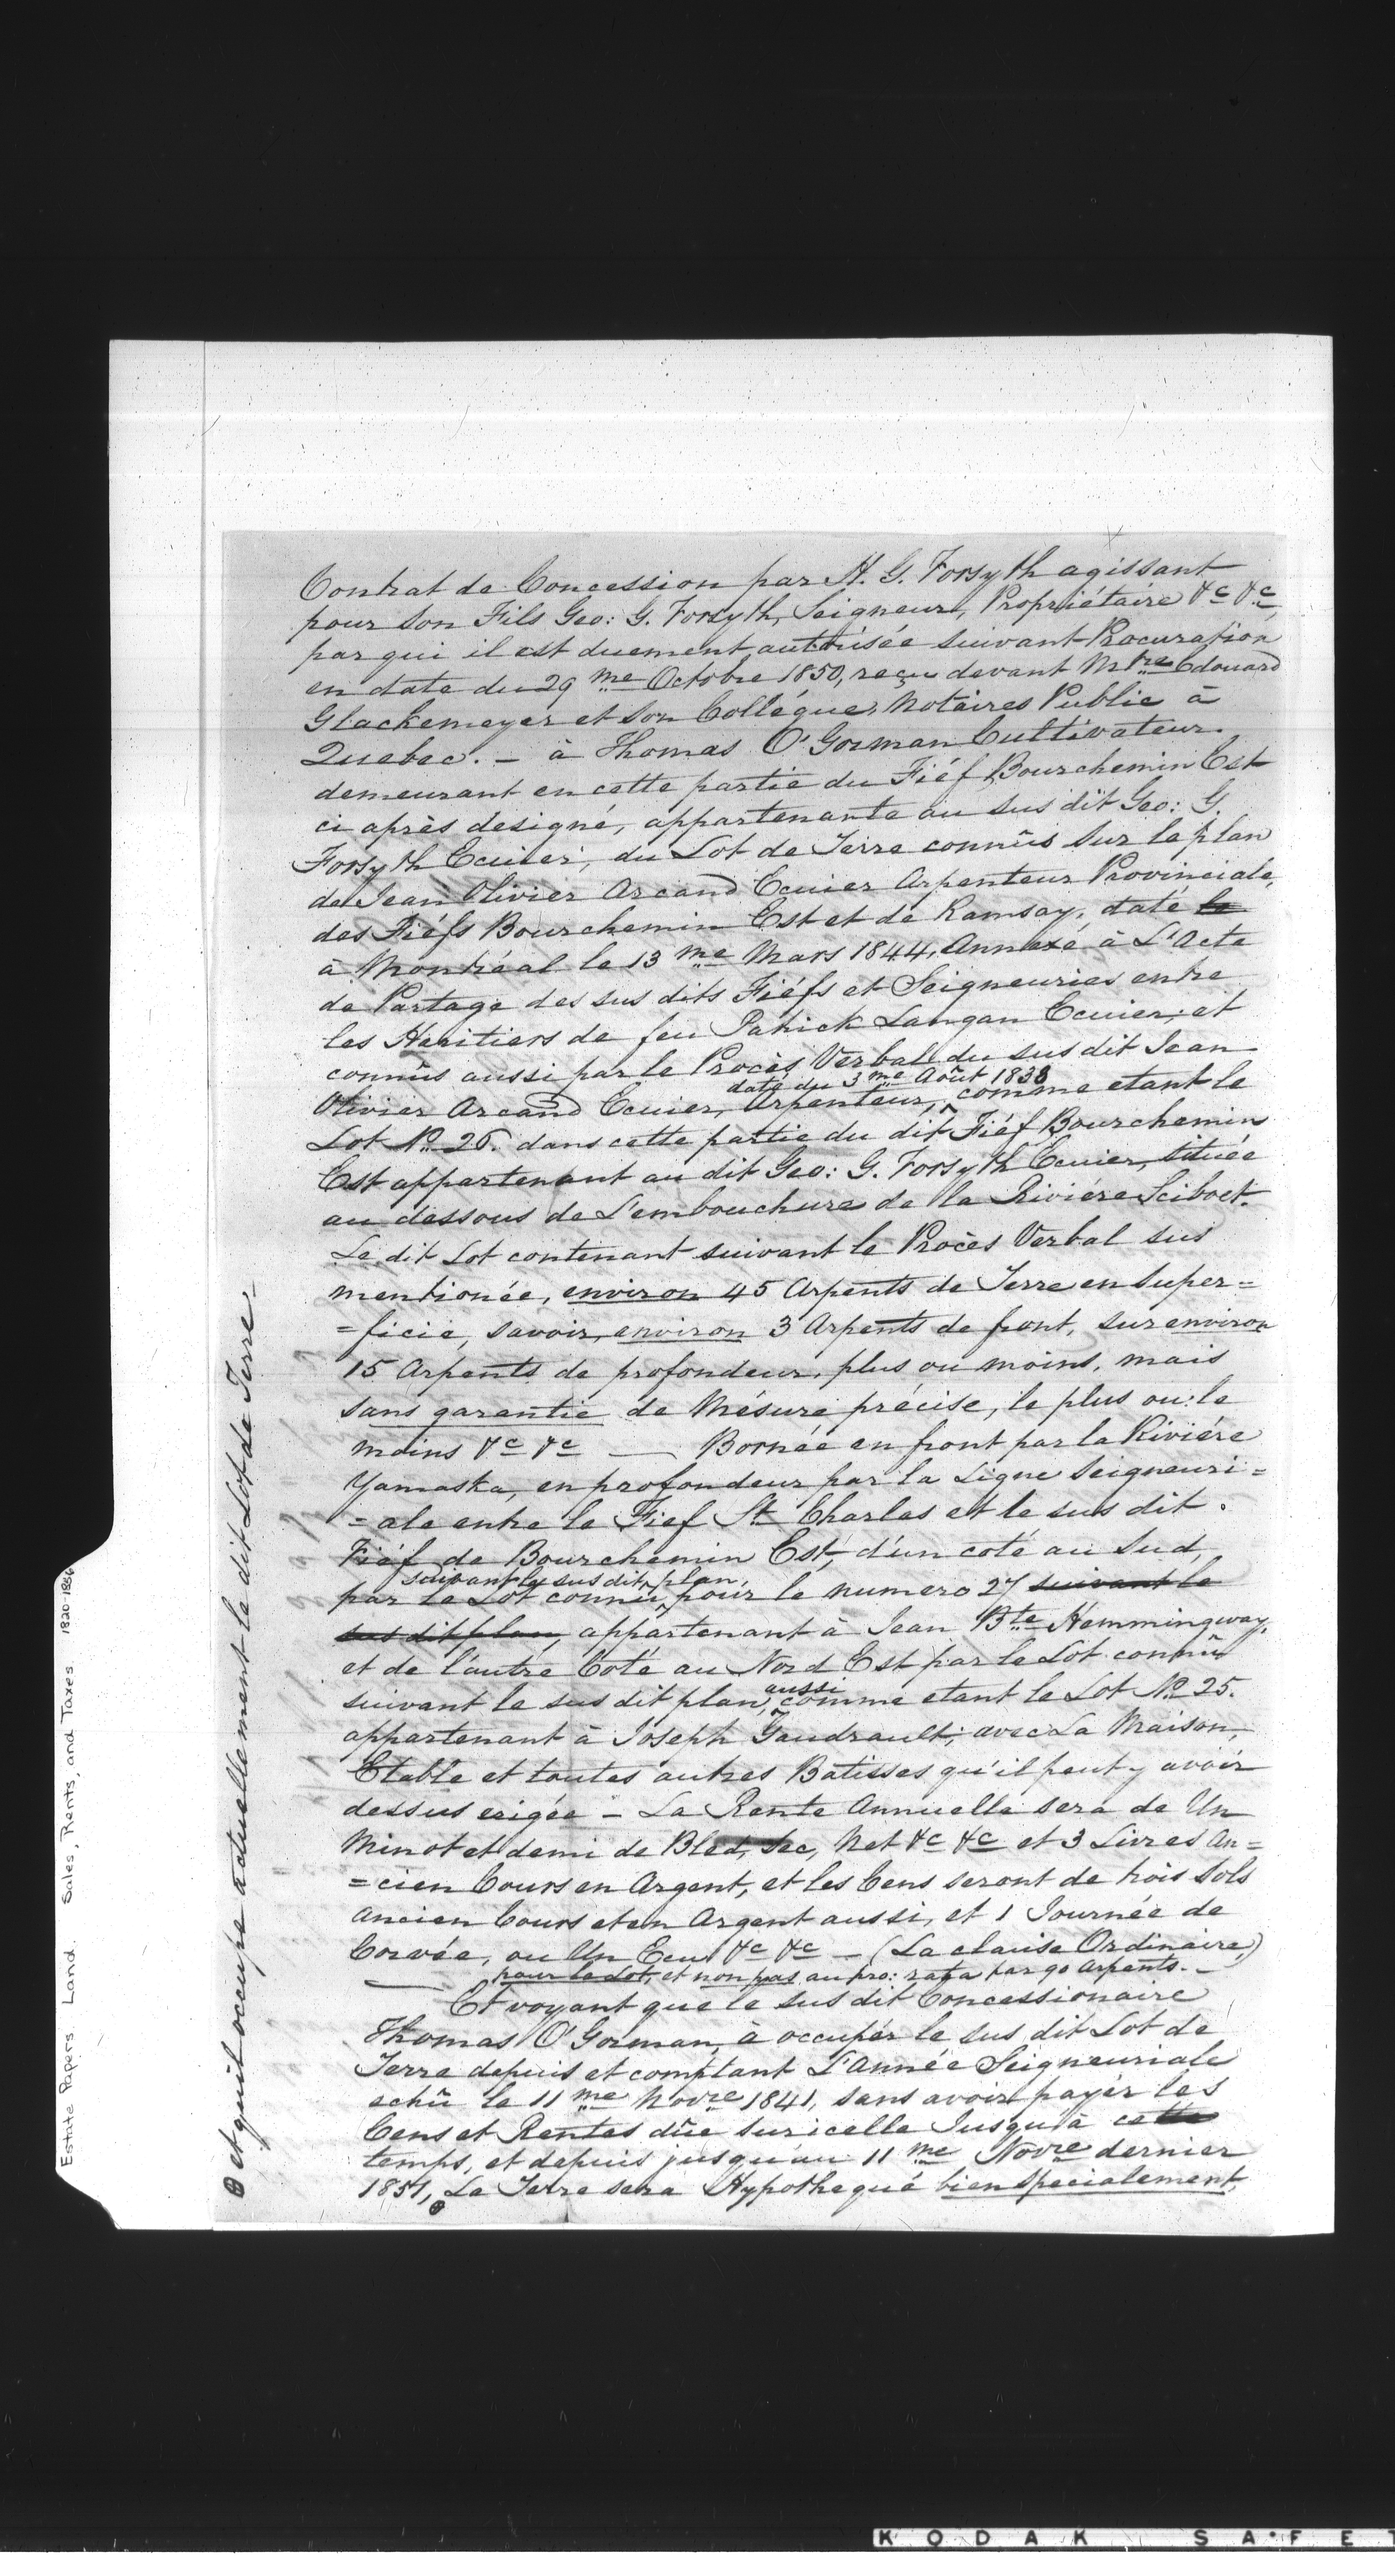 Contrat de Concession par H. G. Forsyth agissant
pour son Fils Geo: G. Forsyth, Seigneur, Propriétaire &c &c,
par qui il est duement autorisée suivant Procuration
en date du 29 me Octobre 1850, reçu devant Mtre Edouard
Glackemeyer et son Collégue, Notaires Public à
Quebec. - à Thomas O'Gorman Cultivateur.
demeurant en cette partie du Fiéf Bourchemin Est
ci après designé, appartenante au sus dit Geo: G.
Forsyth Ecuier, du Lot de Terre connûs sur le plan
de Jean Olivier Arcand Ecuier Arpenteur Provinciale,
des Fiéfs Bourchemin Est et de Ramsay, daté le
à Montréal le 13 me Mars 1844, Annexé à L'Acte
de Partage des sus dits Fiéfs et Seigneuries entre
les Heritiers de feu Patrick Langan Ecuier, et
connûs aussi par le Procès Verbal du sus dit Jean
daté du 3 me Août 1838
Olivier Arcand Ecuier, Arpenteur, comme etant le
Lot No. 26. dans cette partie du dit Fiéf Bourchemin
Est appartenant au dit Geo: G. Forsyth Ecuier, située
au dessous de L'embouchure de la Riviére Sciboet.
Le dit Lot contenant suivant le Procès Verbal sus
mentionée, environ 45 Arpents de Terre en Super=
=ficie, savoir, environ 3 Arpents de front, sur environ
15 Arpents de profondeur, plus ou moins, mais
sans garantie de Mésure précise, le plus ou le
moins &c &c — Bornée en front par la Riviére
Yamaska, en profondeur par la Ligne Seigneuri=
=ale entre le Fief St. Charles et le sus dit.
Fiéf de Bourchemin Est, d'un coté au Sud,
suivant le sus dit plan,
par le Lot connû, pour le numero 27 suivant le
sus dit plan, appartenant à Jean Bte Hemmingway,
et de l'autre Coté au Nord Est par le Lot connûs
aussi
suivant le sus dit plan, comme etant le Lot No. 25.
appartenant à Joseph Gaudrault; avec La Maison,
Etable et toutes autres Batisses qu'il peut y avoir
dessus erigée - La Rente Annuelle sera de Un
Minot et demi de Bled, Sec, Net &c &c et 3 Livres An=
=cien Cours en Argent, et les Cens seront de trois Sols
Ancien Cours et en Argent aussi, et 1 Journée de
Corvée, ou Un Ecu &c &c - (La clause Ordinaire)
pour le Lot, et non pas au pro: rata par 90 Arpents. -
— Et voyant que le sus dit Concessionaire
Thomas O'Gorman, à occupér le sus dit Lot de
Terre depuis et comptant L'Année Seigneuriale
echû le 11 me Novre 1841, sans avoir payér les
Cens et Rentes dûe sur icelle Jusqu'à cette
temps, et depuis jusqu'au 11 me Novre dernier
1851, La Terre sera Hypothequé bien specialement,
et qu'il occupe actuellement le dit Lot de Terre -
Estate Papers: Land. Sales, Rents, and Taxes 1820-1856
KODAK SAFET